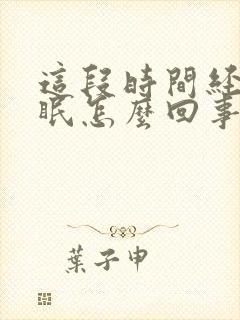 這段時間經
眠怎麼回事
葉子申